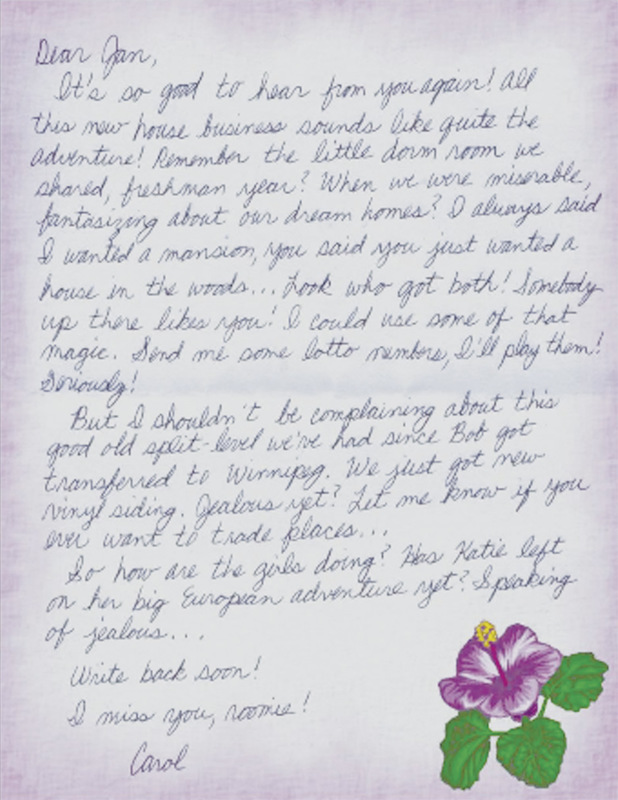 Dear Jan,
It's so good to hear from you again! All
this new house business sounds like quite the
adventure! Remember the little dorm room we
shared, freshman year? When we were miserable,
fantasizing about our dream homes? I always said
I wanted a mansion, you said you just wanted a
house in the woods... Look who got both! Somebody
up there likes you! I could use some of that
magic. Send me some lotto numbers, I'll play them!
Seriously!
But I shouldn't be complaining about this
good old split-level we've had since Bob got
transferred to Winnipeg. We just got new
vinyl siding. Jealous yet? Let me know if you
ever want to trade places...
So how are the girls doing? Has Katie left
on her big European adventure yet? Speaking
of jealous...
Write back soon!
I miss you, roomie!
Carol